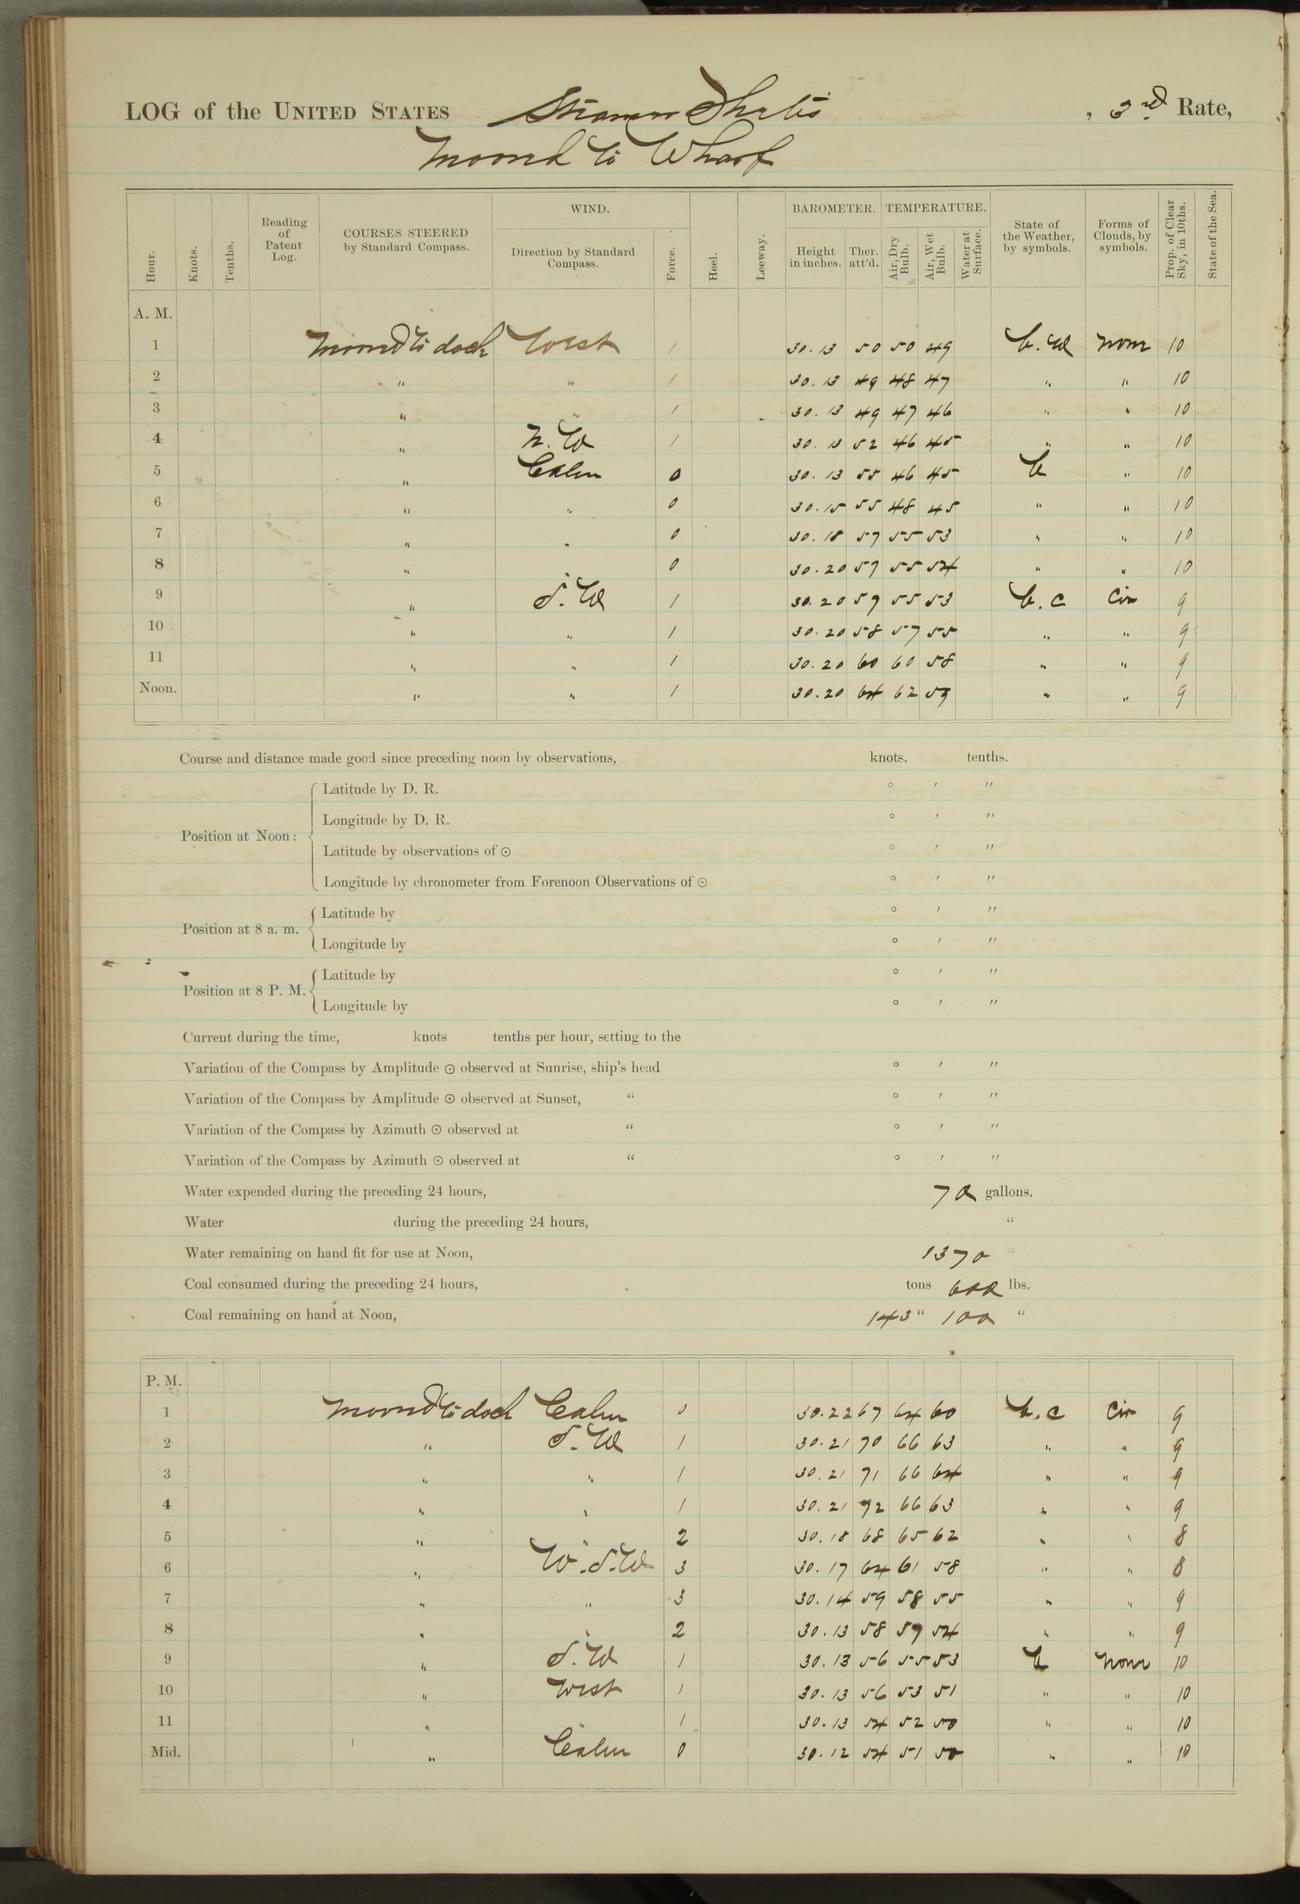 LOG of the UNITED STATES Steamer Thetis, 3rd Rate,
Moored to Wharf
Hour. Knots. Tenths. Reading of Patent Log. COURSES STEERED by Standard Compass. WIND. Direction by Standard Compass. Force. Heel. Leeway. BAROMETER. Height in inches. Ther. att'd. TEMPERATURE. Air, Dry Bulb. Air, Wet Bulb. Water at Surface. State of the Weather, by symbols. Forms of Clouds, by symbols. Prop. of Clear Sky, in 10ths. State of the Sea.
A. M.
1 Moored to dock West 1 30.13 50 50 49 b.w none 10
2 " " 1 30.13 49 48 47 " " 10
3 " " 1 30.13 49 47 46 " " 10
4 " N.W 1 30.13 52 46 45 " " 10
5 " Calm 0 30.13 55 46 45 b " 10
6 " " 0 30.15 55 48 45 " " 10
7 " " 0 30.18 57 55 53 " " 10
8 " " 0 30.20 57 55 54 " " 10
9 " S.W 1 30.20 57 55 53 b.c Cir 9
10 " " 1 30.20 58 57 55 " " 9
11 " " 1 30.20 60 60 58 " " 9
Noon. " " 1 30.20 64 62 59 " " 9
Course and distance made good since preceding noon by observations, knots. tenths.
Position at Noon: Latitude by D. R. ° ′ ″
Longitude by D. R. ° ′ ″
Latitude by observations of ⊙ ° ′ ″
Longitude by chronometer from Forenoon Observations of ⊙ ° ′ ″
Position at 8 a. m. Latitude by ° ′ ″
Longitude by ° ′ ″
Position at 8 P. M. Latitude by ° ′ ″
Longitude by ° ′ ″
Current during the time, knots tenths per hour, setting to the
Variation of the Compass by Amplitude ⊙ observed at Sunrise, ship's head ° ′ ″
Variation of the Compass by Amplitude ⊙ observed at Sunset, " ° ′ ″
Variation of the Compass by Azimuth ⊙ observed at " ° ′ ″
Variation of the Compass by Azimuth ⊙ observed at " ° ′ ″
Water expended during the preceding 24 hours, 70 gallons.
Water during the preceding 24 hours, "
Water remaining on hand fit for use at Noon, 1370 "
Coal consumed during the preceding 24 hours, tons 600 lbs.
Coal remaining on hand at Noon, 143 " 100 "
P. M.
1 Moored to dock Calm 0 30.22 67 64 60 b.c Cir 9
2 " S.W 1 30.21 70 66 63 " " 9
3 " " 1 30.21 71 66 64 " " 9
4 " " 1 30.21 72 66 63 " " 9
5 " " 2 30.18 68 65 62 " " 8
6 " W.S.W 3 30.17 64 61 58 " " 8
7 " " 3 30.14 59 58 55 " " 9
8 " " 2 30.13 58 57 54 " " 9
9 " S.W 1 30.13 56 55 53 b none 10
10 " West 1 30.13 56 53 51 " " 10
11 " " 1 30.13 54 52 50 " " 10
Mid. " Calm 0 30.12 54 51 50 " " 10